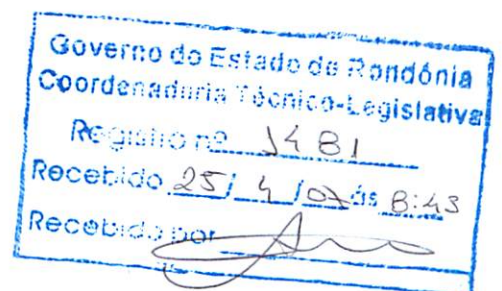 Governo do Estado de Rondônia
Coordenadoria Técnico-Legislativa
Registro nº 1481
Recebido 25/ 4 /07 às 8:43
Recebido por